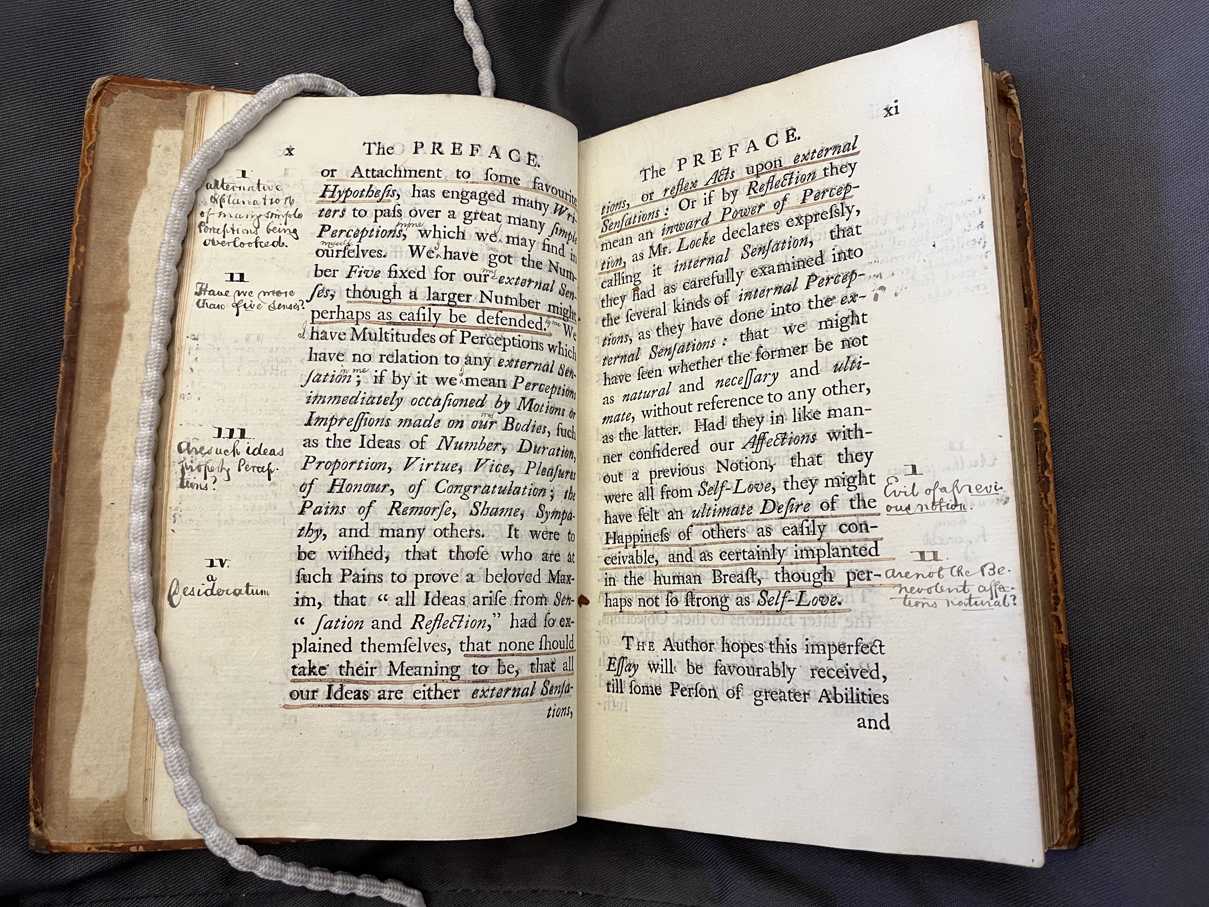 x
The PREFACE.
or Attachment to ſome favourite
Hypotheſis, has engaged many Wri-
ters to paſs over a great many ſimple
Perceptions, which we may find in
ourſelves. We have got the Num-
ber Five fixed for our external Sen-
ſes, though a larger Number might
perhaps as eaſily be defended. We
have Multitudes of Perceptions which
have no relation to any external Sen-
ſation; if by it we mean Perceptions
immediately occaſioned by Motions or
Impreſſions made on our Bodies, ſuch
as the Ideas of Number, Duration,
Proportion, Virtue, Vice, Pleaſures
of Honour, of Congratulation; the
Pains of Remorſe, Shame, Sympa-
thy, and many others. It were to
be wiſhed, that thoſe who are at
ſuch Pains to prove a beloved Max-
im, that “ all Ideas ariſe from Sen-
“ ſation and Reflection,” had ſo ex-
plained themſelves, that none ſhould
take their Meaning to be, that all
our Ideas are either external Senſa-
tions,
I
alternative
explanation
of many simple
perceptions being
overlooked.
II
Have we more
than five senses?
III
Are such ideas
properly Percep-
tions?
IV.
a
Desideratum
xi
The PREFACE.
tions, or reflex Acts upon external
Senſations: Or if by Reflection they
mean an inward Power of Percep-
tion, as Mr. Locke declares expreſly,
calling it internal Senſation, that
they had as carefully examined into
the ſeveral kinds of internal Percep-
tions, as they have done into the ex-
ternal Senſations: that we might
have ſeen whether the former be not
as natural and neceſſary and ulti-
mate, without reference to any other,
as the latter. Had they in like man-
ner conſidered our Affections with-
out a previous Notion, that they
were all from Self-Love, they might
have felt an ultimate Deſire of the
Happineſs of others as eaſily con-
ceivable, and as certainly implanted
in the human Breaſt, though per-
haps not ſo ſtrong as Self-Love.
THE Author hopes this imperfect
Eſſay will be favourably received,
till ſome Perſon of greater Abilities
and
I
Evil of a previ-
ous notion.
II.
Are not the Be-
nevolent affec-
tions natural?